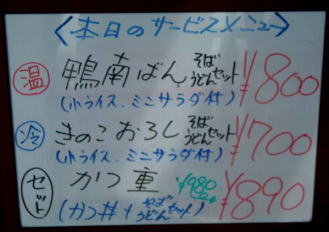 <本日のサービスメニュー>
温 鴨南ばん そばうどんセット ¥800
(小ライス、ミニサラダ付)
冷 きのこおろし そばうどんセット ¥700
(小ライス、ミニサラダ付)
セット かつ重 ¥980 ¥890
(かつ丼+そばうどんセット)